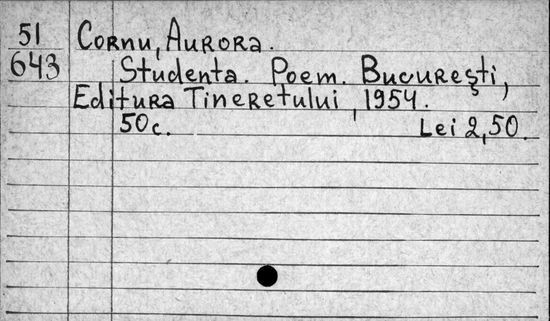 51
643
Cornu, Aurora.
Studenta. Poem. București,
Editura Tineretului, 1954.
50c. Lei 2,50.